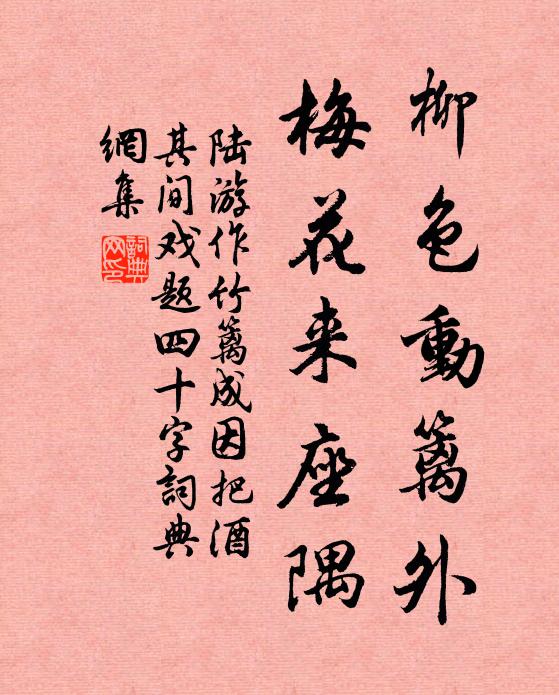 柳色動籬外
梅花来座隅
陆游作竹籬成因把酒
其间戏题四十字詞典
網集
詞典
网印